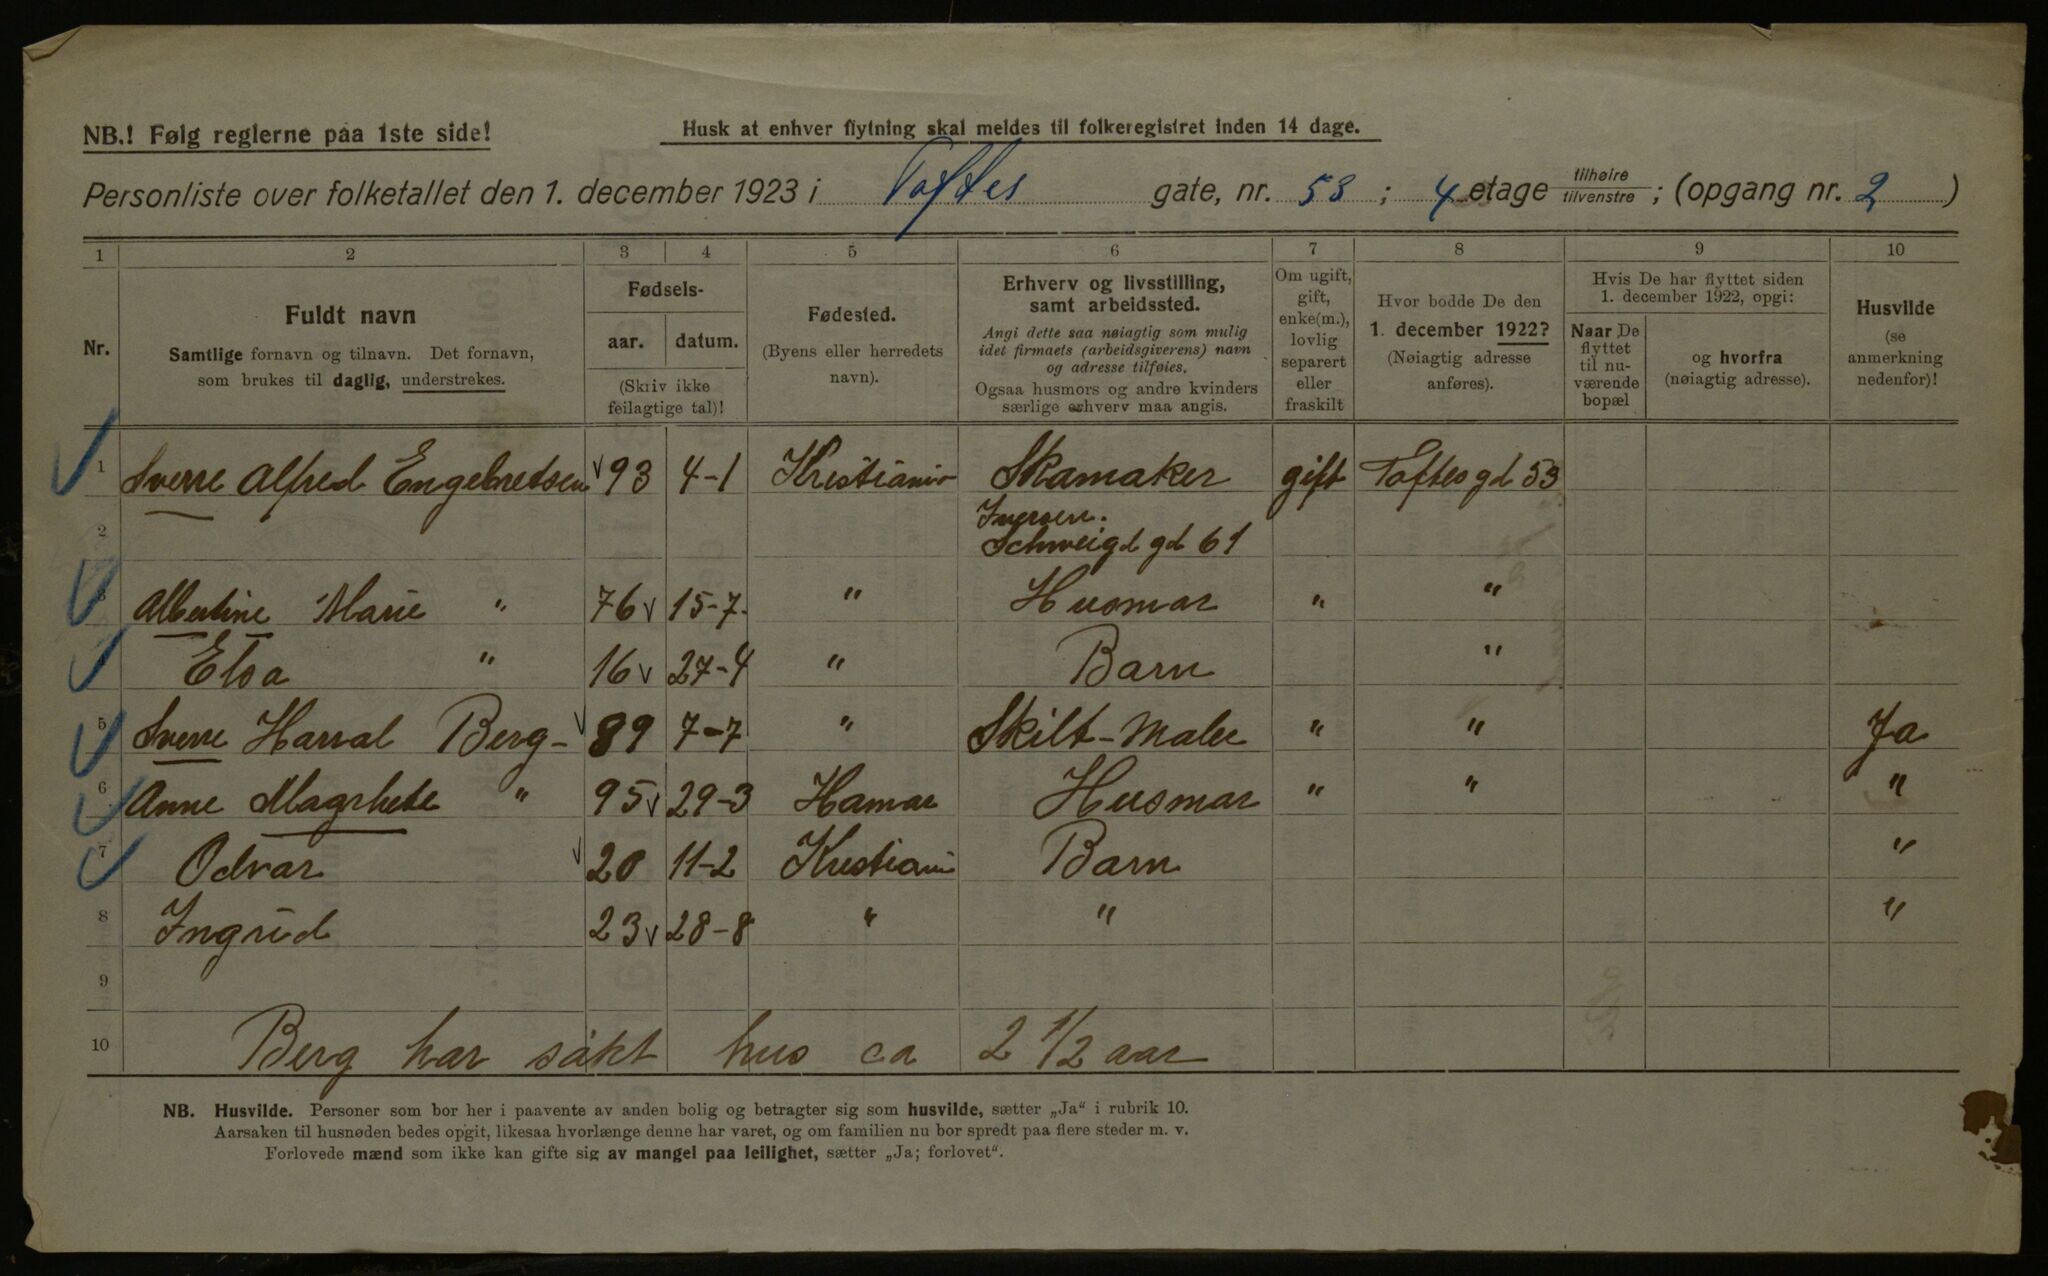 NB.! Følg reglerne paa 1ste side!
Husk at enhver flytning skal meldes til folkeregistret inden 14 dage.
Personliste over folketallet den 1. december 1923 i Toftes gate, nr. 53 ; 4 etage tilhøire tilvenstre ; (opgang nr. 2 )
1 2 3 4 5 6 7 8 9 10
Nr.
Fuldt navn
Samtlige fornavn og tilnavn. Det fornavn,
som brukes til daglig, understrekes.
Fødsels-
aar. datum.
(Skriv ikke
feilagtige tal)!
Fødested.
(Byens eller herredets
navn).
Erhverv og livsstilling,
samt arbeidssted.
Angi dette saa nøiagtig som mulig
idet firmaets (arbeidsgiverens) navn
og adresse tilføies.
Ogsaa husmors og andre kvinders
særlige erhverv maa angis.
Om ugift,
gift,
enke(m.),
lovlig
separert
eller
fraskilt
Hvor bodde De den
1. december 1922?
(Nøiagtig adresse
anføres).
Hvis De har flyttet siden
1. december 1922, opgi:
Naar De
flyttet
til nu-
værende
bopæl
og hvorfra
(nøiagtig adresse).
Husvilde
(se
anmerkning
nedenfor)!
1 Sverre Alfred Engebretsen 93 4-1 Kristiania Skamaker gift Toftesgd 53
2 Iversen.
Schweigd gd 61
3 Albertine Marie " 76 15-7. " Husmor " "
Elsa " 16 27-4 " Barn "
5 Sverre Harral Berg- 89 7-7 " Skilt-Maler " " Ja
6 Anne Magrhete " 95 29-3 Hamar Husmor " " "
7 Odvar 20 11-2 Kristiani Barn "
8 Ingrid 23 28-8 " " "
9
10 Berg har søkt hus ca 2 1/2 aar
NB. Husvilde. Personer som bor her i paavente av anden bolig og betragter sig som husvilde, sætter „Ja“ i rubrik 10.
Aarsaken til husnøden bedes opgit, likesaa hvorlænge denne har varet, og om familien nu bor spredt paa flere steder m. v.
Forlovede mænd som ikke kan gifte sig av mangel paa leilighet, sætter „Ja; forlovet“.